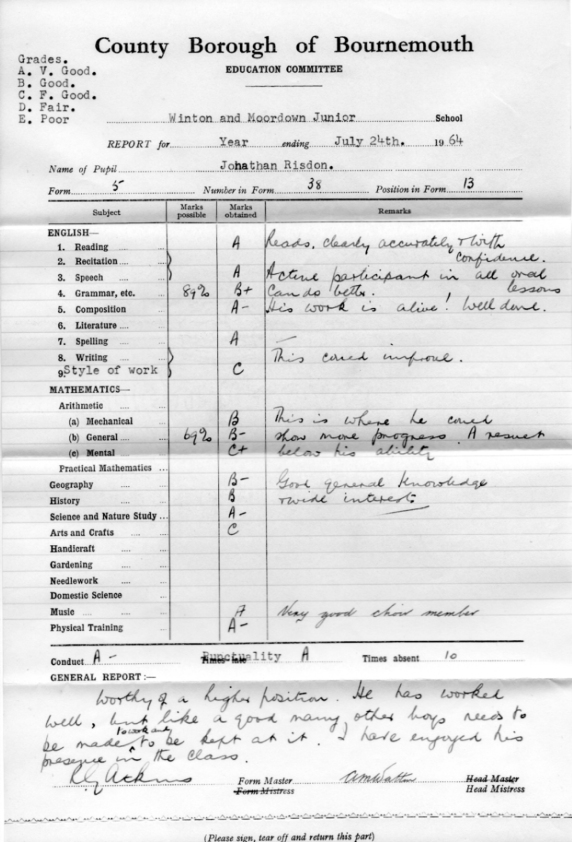 County Borough of Bournemouth
EDUCATION COMMITTEE
Grades.
A. V. Good.
B. Good.
C. F. Good.
D. Fair.
E. Poor
Winton and Moordown Junior School
REPORT for Year ending July 24th. 1964
Name of Pupil Johathan Risdon.
Form 5 Number in Form 38 Position in Form 13
Subject Marks possible Marks obtained Remarks
ENGLISH—
1. Reading A Reads, clearly accurately & with
2. Recitation confidence.
3. Speech A Active participant in all oral
4. Grammar, etc. 89% B+ Can do better. lessons
5. Composition A- His work is alive! Well done.
6. Literature
7. Spelling A —
8. Writing This could improve.
9. Style of work C
MATHEMATICS—
Arithmetic
(a) Mechanical B This is where he could
(b) General 69% B- show more progress. A result
(c) Mental C+ below his ability
Practical Mathematics
Geography B- Good general knowledge
History B & wide interests
Science and Nature Study A-
Arts and Crafts C
Handicraft
Gardening
Needlework
Domestic Science
Music A Very good choir member
Physical Training A-
Conduct A- Punctuality A Times absent 10
GENERAL REPORT:—
Worthy of a higher position. He has worked
well, but like a good many other boys needs to
be made to work and to be kept at it. I have enjoyed his
presence in the class.
Form Master Head Master
Form Mistress Head Mistress
(Please sign, tear off and return this part)